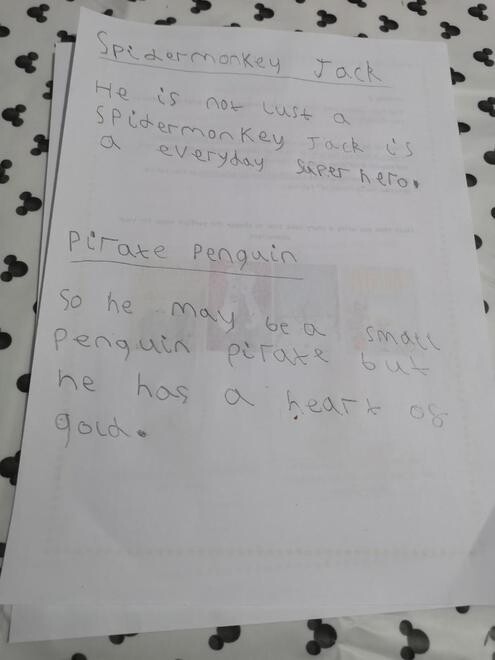 Spidermonkey Jack
He is not Lust a
Spidermonkey Jack is
a everyday super hero.
Pirate Penguin
So he may be a small
Penguin pirate but
he has a heart of
gold.